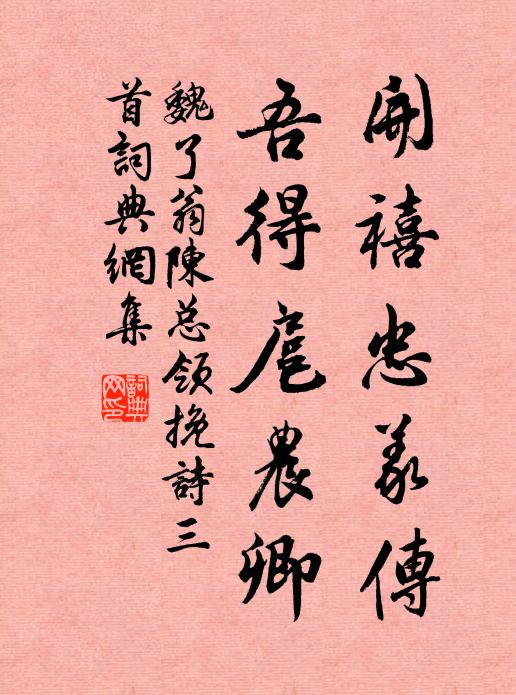 開禧忠義傳
吾得扈農卿
魏了翁陳总領挽詩三
首詞典網集
詞典
网印